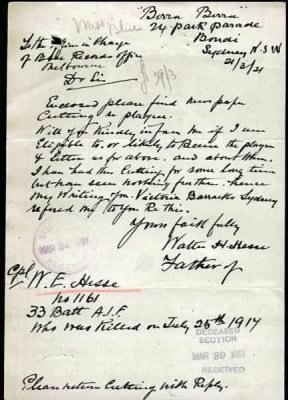 "Borra Borra"
24 Park Parade
Bondi
Sydney N.S.W
21/3/21
To the Offr in Charge
of Base Records office
Melbourne
Dr Sir
29/3
Enclosed please find newspaper
Cutting re plaque.
Will you Kindly inform me if I am
Eligible to, or likely to Receive the plaque
& letter as per above. and about When.
I have had this Cutting for some long time
but have seen nothing further. hence
my Writing you. Victoria Barracks Sydney
refered me to you Re this.
Yours faithfully
Walter H. Hesse
Father of
Cpl W. E. Hesse
No 1161
33 Batt A.I.F.
Who was Killed on July 25th 1917
DECEASED
SECTION
MAR 29 1921
RECEIVED
Please return Cutting with Reply.